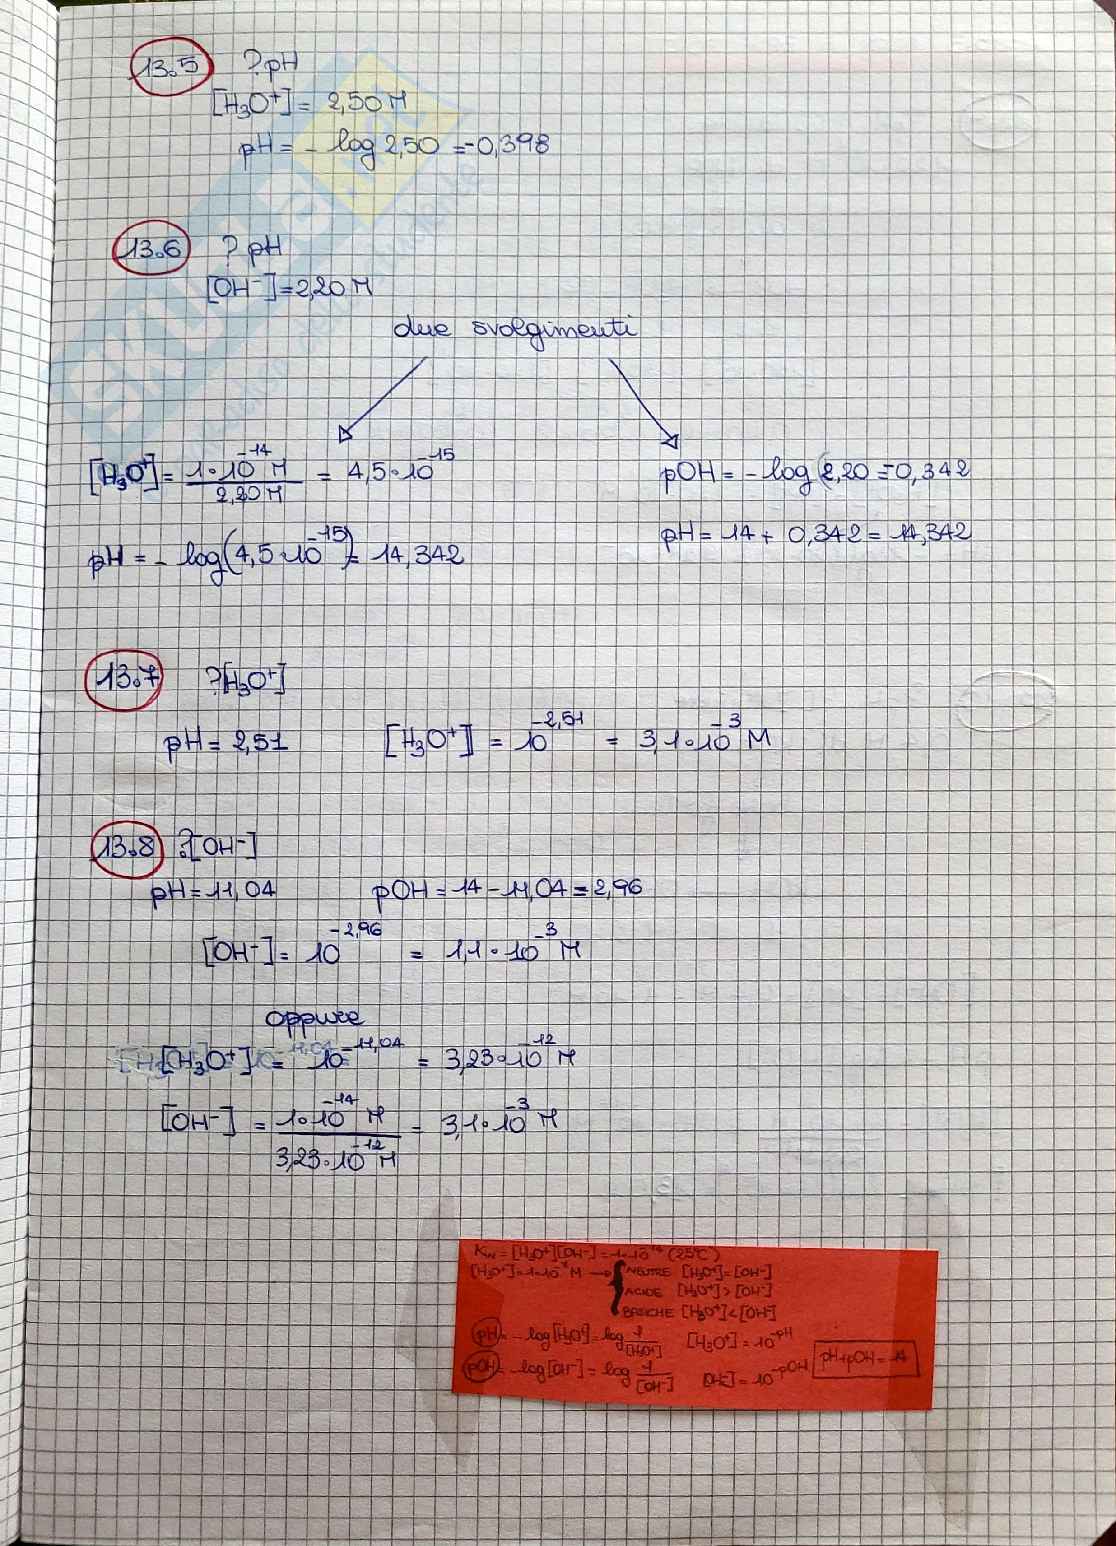 13.5 ? pH
[H₃O⁺] = 2,50 M
pH = - log 2,50 = -0,398
13.6 ? pH
[OH⁻] = 2,20 M
due svolgimenti
[H₃O⁺] = 1•10⁻¹⁴ M / 2,20 M = 4,5•10⁻¹⁵
pOH = - log (2,20 = -0,342
pH = - log(4,5•10⁻¹⁵) = 14,342
pH = 14 + 0,342 = 14,342
13.7 ? [H₃O⁺]
pH = 2,51 [H₃O⁺] = 10⁻²,⁵¹ = 3,1•10⁻³ M
13.8 ? [OH⁻]
pH = 11,04 pOH = 14 - 11,04 = 2,96
[OH⁻] = 10⁻²,⁹⁶ = 1,1•10⁻³ M
oppure
[H₃O⁺] = 10⁻¹¹,⁰⁴ = 3,23•10⁻¹² M
[OH⁻] = 1•10⁻¹⁴ M / 3,23•10⁻¹² M = 3,1•10⁻³ M
Kw = [H₃O⁺][OH⁻] = 1•10⁻¹⁴ (25°C)
[H₃O⁺] = 1•10⁻⁷ M → { NEUTRE [H₃O⁺] = [OH⁻]
ACIDE [H₃O⁺] > [OH⁻]
BASICHE [H₃O⁺] < [OH⁻]
pH = - log[H₃O⁺] = log 1/[H₃O⁺] [H₃O⁺] = 10⁻ᵖᴴ
pOH = - log[OH⁻] = log 1/[OH⁻] [OH⁻] = 10⁻ᵖᴼᴴ pH + pOH = 14
SKUOLA.net